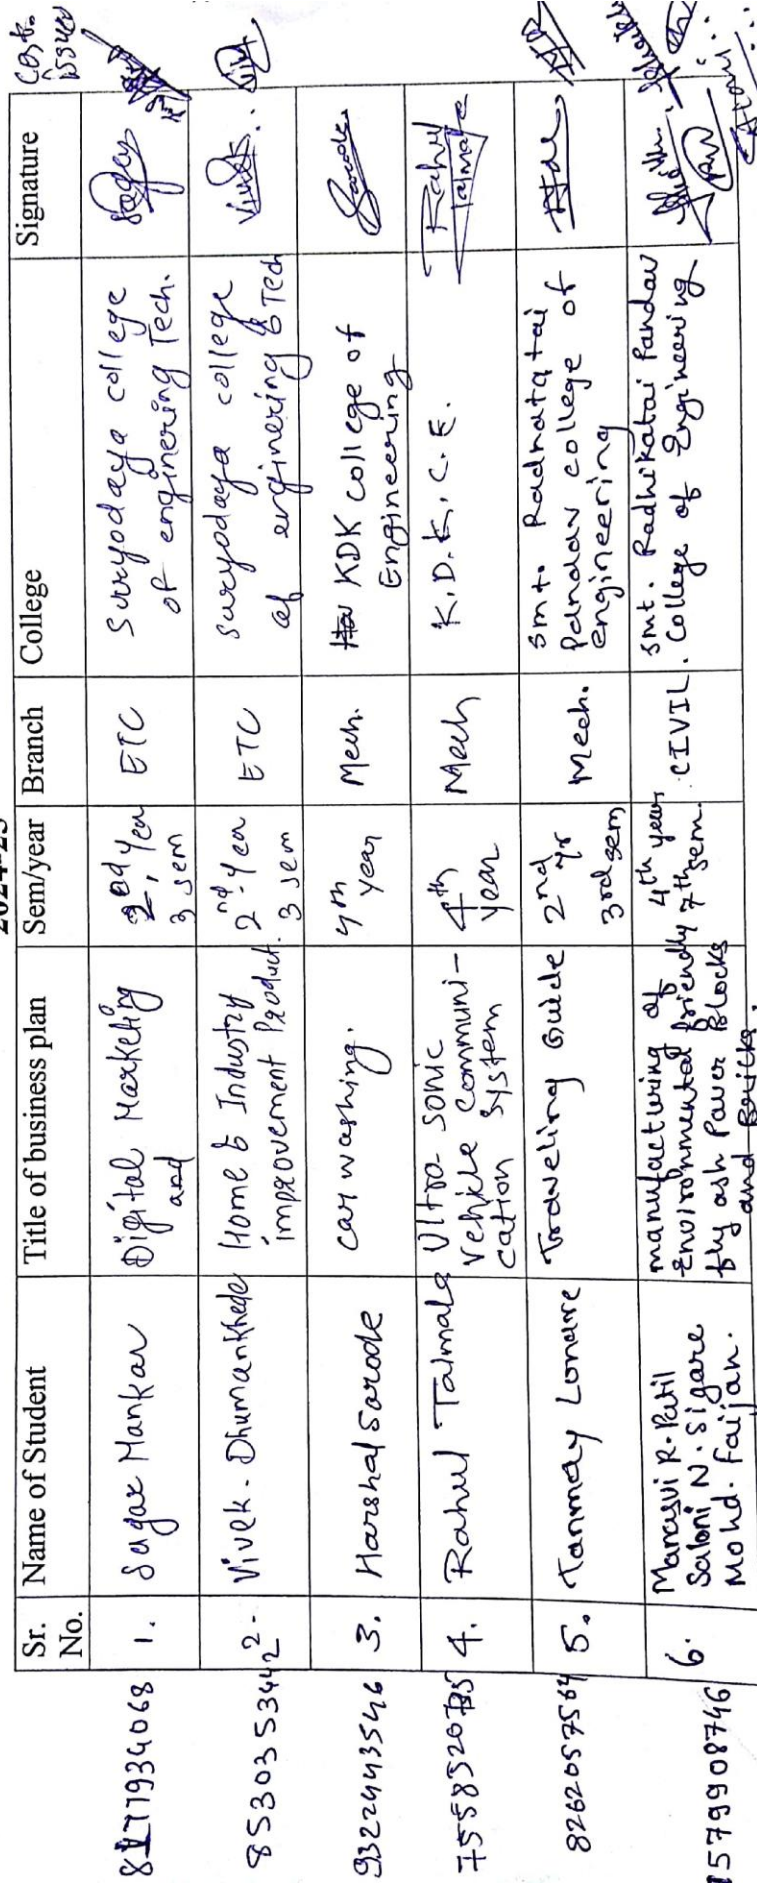 2024-25
Cert.
issued
Sr. No. Name of Student Title of business plan Sem/year Branch College Signature
8177934068 1. Sagar Mankar Digital Marketing and 2nd Year 3 sem ETC Suryodaya college of enginering Tech. Sagar
8530353442 2. Vivek. Dhumankhede Home & Industry improvement Product. 2nd Year 3 sem ETC suryodaya college of enginering & Tech Vivek
9322443546 3. Harshal Sarode car washing. 4th year Mech. KDK college of Engineering Sarode
4. Rahul Talmale Ultra-sonic Vehicle Communi-cation System 4th year Mech K.D.K.C.E. Rahul Talmale
8262057564 5. Tanmay Lonare Traveling Guide 2nd yr 3rd sem Mech. smt. Radhatatai Pandav college of engineering
1579908746 6. Manasvi R. Patil Saloni N. Sigare Mohd. Faijan. manufacturing of Environmental friendly fly ash Paver Blocks and Bricks. 4th year 7th sem. CIVIL. smt. Radhikatai Pandav College of Engineering.